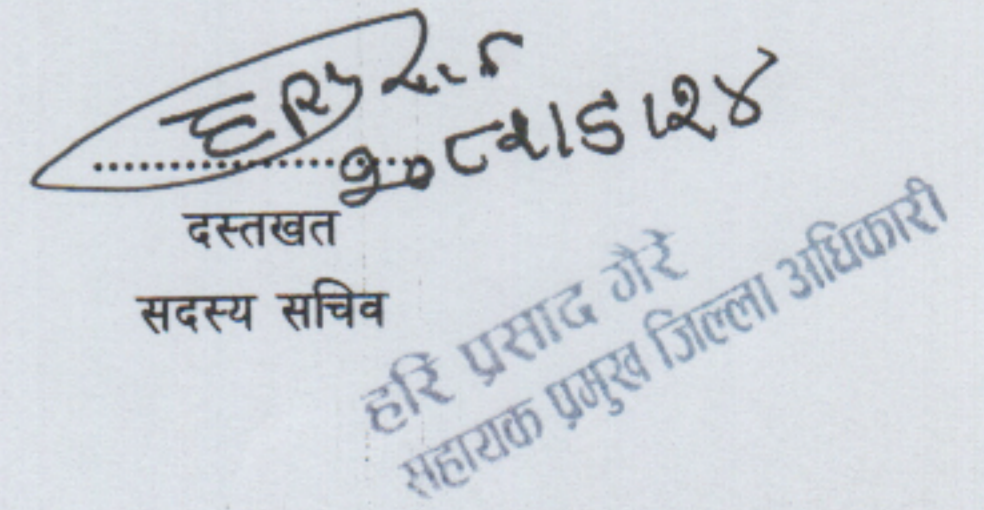 २०८२।८।२४
दस्तखत
सदस्य सचिव
हरि प्रसाद गैरे
सहायक प्रमुख जिल्ला अधिकारी